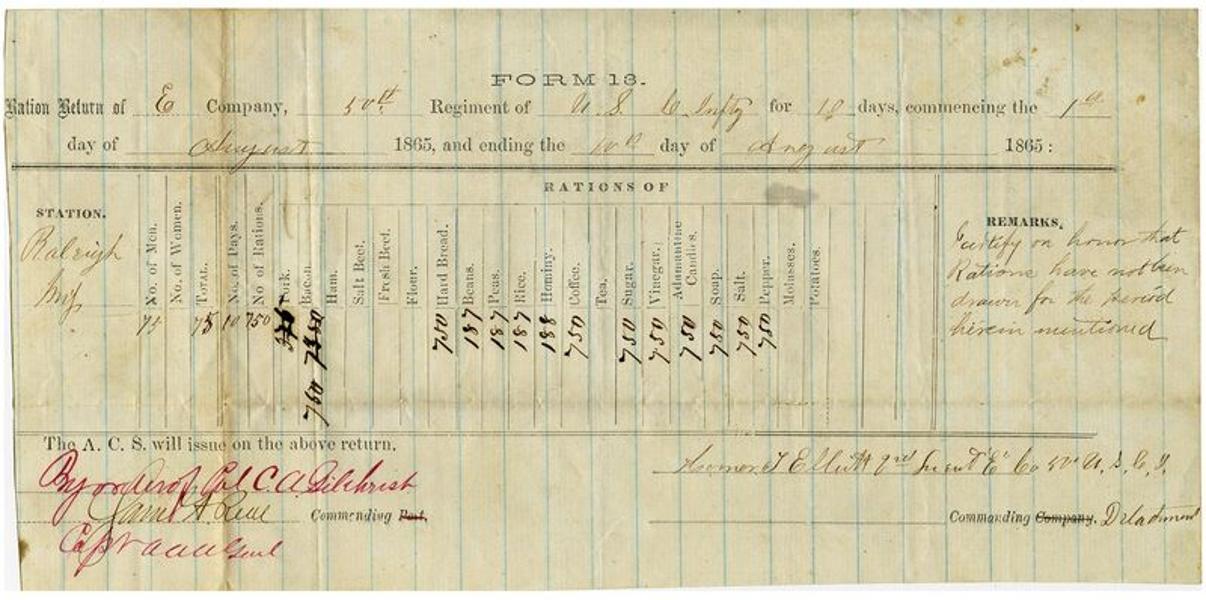 FORM 13.
Ration Return of E Company, 50th Regiment of U. S. C. Infty for 10 days, commencing the 1st
day of August 1865, and ending the 10th day of August 1865:
RATIONS OF
STATION. No. of Men. No. of Women. TOTAL. No. of Days. No. of Rations. Pork. Bacon. Ham. Salt Beef. Fresh Beef. Flour. Hard Bread. Beans. Peas. Rice. Hominy. Coffee. Tea. Sugar. Vinegar. Adamantine Candles. Soap. Salt. Pepper. Molasses. Potatoes. REMARKS,
Raleigh
75 75 10 750 750 187 187 187 188 750 750 750 750 750 750 750
750
I certify on honor that
Rations have not been
drawn for the period
herein mentioned
The A. C. S. will issue on the above return.
By order of Col C. A. Gilchrist
Commending Post,
Capt a a a Genl
Elliott 2nd Lieut "E" Co 50th U. S. C. I.
Commanding Company. Detachment